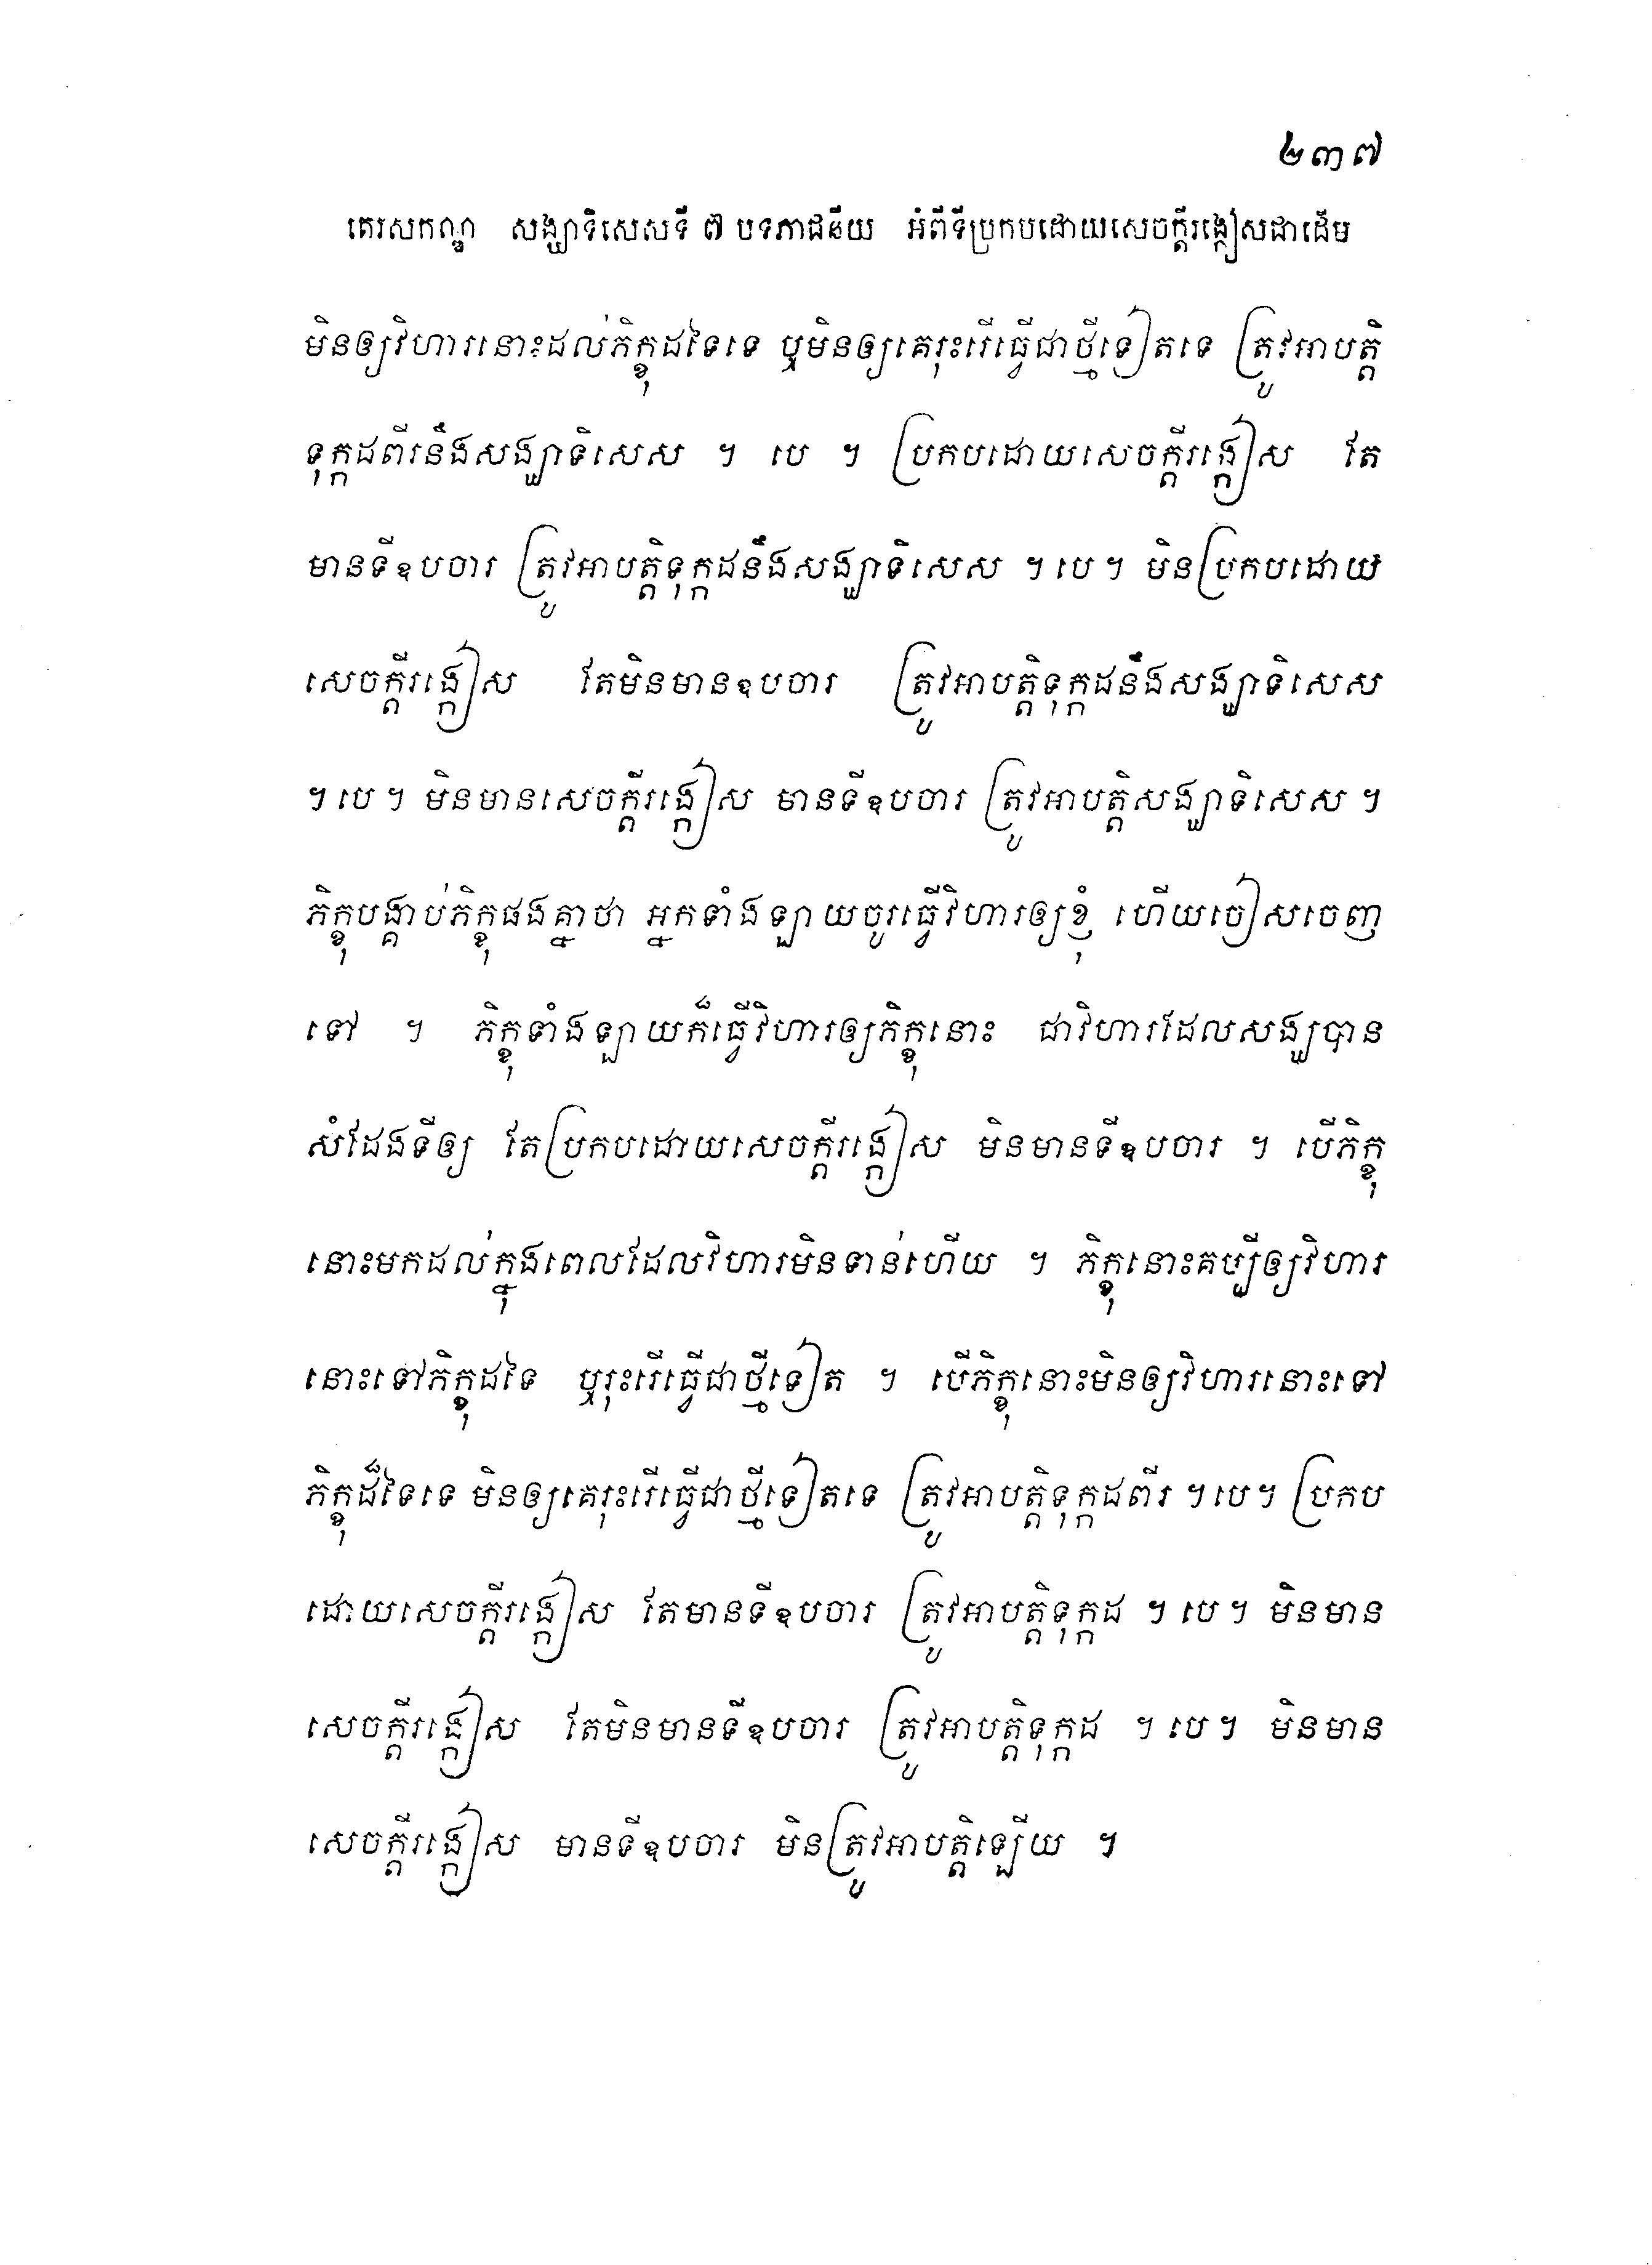 ២៣៧
តេរសកណ្ឌ សង្ឃាទិសេសទី ៧ បទភាជនីយ អំពីទីប្រកបដោយសេចក្តីរង្កៀសជាដើម
មិនឲ្យវិហារនោះដល់ភិក្ខុដទៃទេ ឬមិនឲ្យគេរុះរើធ្វើជាថ្មីទៀតទេ ត្រូវអាបត្តិ
ទុក្កដពីរនឹងសង្ឃាទិសេស ។ បេ ។ ប្រកបដោយសេចក្តីរង្កៀស តែ
មានទីឧបចារ ត្រូវអាបត្តិទុក្កដនឹងសង្ឃាទិសេស ។ បេ ។ មិនប្រកបដោយ
សេចក្តីរង្កៀស តែមិនមានឧបចារ ត្រូវអាបត្តិទុក្កដនឹងសង្ឃាទិសេស
។ បេ ។ មិនមានសេចក្តីរង្កៀស មានទីឧបចារ ត្រូវអាបត្តិសង្ឃាទិសេស ។
ភិក្ខុបង្គាប់ភិក្ខុផងគ្នាថា អ្នកទាំងឡាយចូរធ្វើវិហារឲ្យខ្ញុំ ហើយចៀសចេញ
ទៅ ។ ភិក្ខុទាំងឡាយក៏ធ្វើវិហារឲ្យភិក្ខុនោះ ជាវិហារដែលសង្ឃបាន
សំដែងទីឲ្យ តែប្រកបដោយសេចក្តីរង្កៀស មិនមានទីឧបចារ ។ បើភិក្ខុ
នោះមកដល់ក្នុងពេលដែលវិហារមិនទាន់ហើយ ។ ភិក្ខុនោះគប្បីឲ្យវិហារ
នោះទៅភិក្ខុដទៃ ឬរុះរើធ្វើជាថ្មីទៀត ។ បើភិក្ខុនោះមិនឲ្យវិហារនោះទៅ
ភិក្ខុដ៏ទៃទេ មិនឲ្យគេរុះរើធ្វើជាថ្មីទៀតទេ ត្រូវអាបត្តិទុក្កដពីរ ។ បេ ។ ប្រកប
ដោយសេចក្តីរង្កៀស តែមានទីឧបចារ ត្រូវអាបត្តិទុក្កដ ។ បេ ។ មិនមាន
សេចក្តីរង្កៀស តែមិនមានទីឧបចារ ត្រូវអាបត្តិទុក្កដ ។ បេ ។ មិនមាន
សេចក្តីរង្កៀស មានទីឧបចារ មិនត្រូវអាបត្តិឡើយ ។